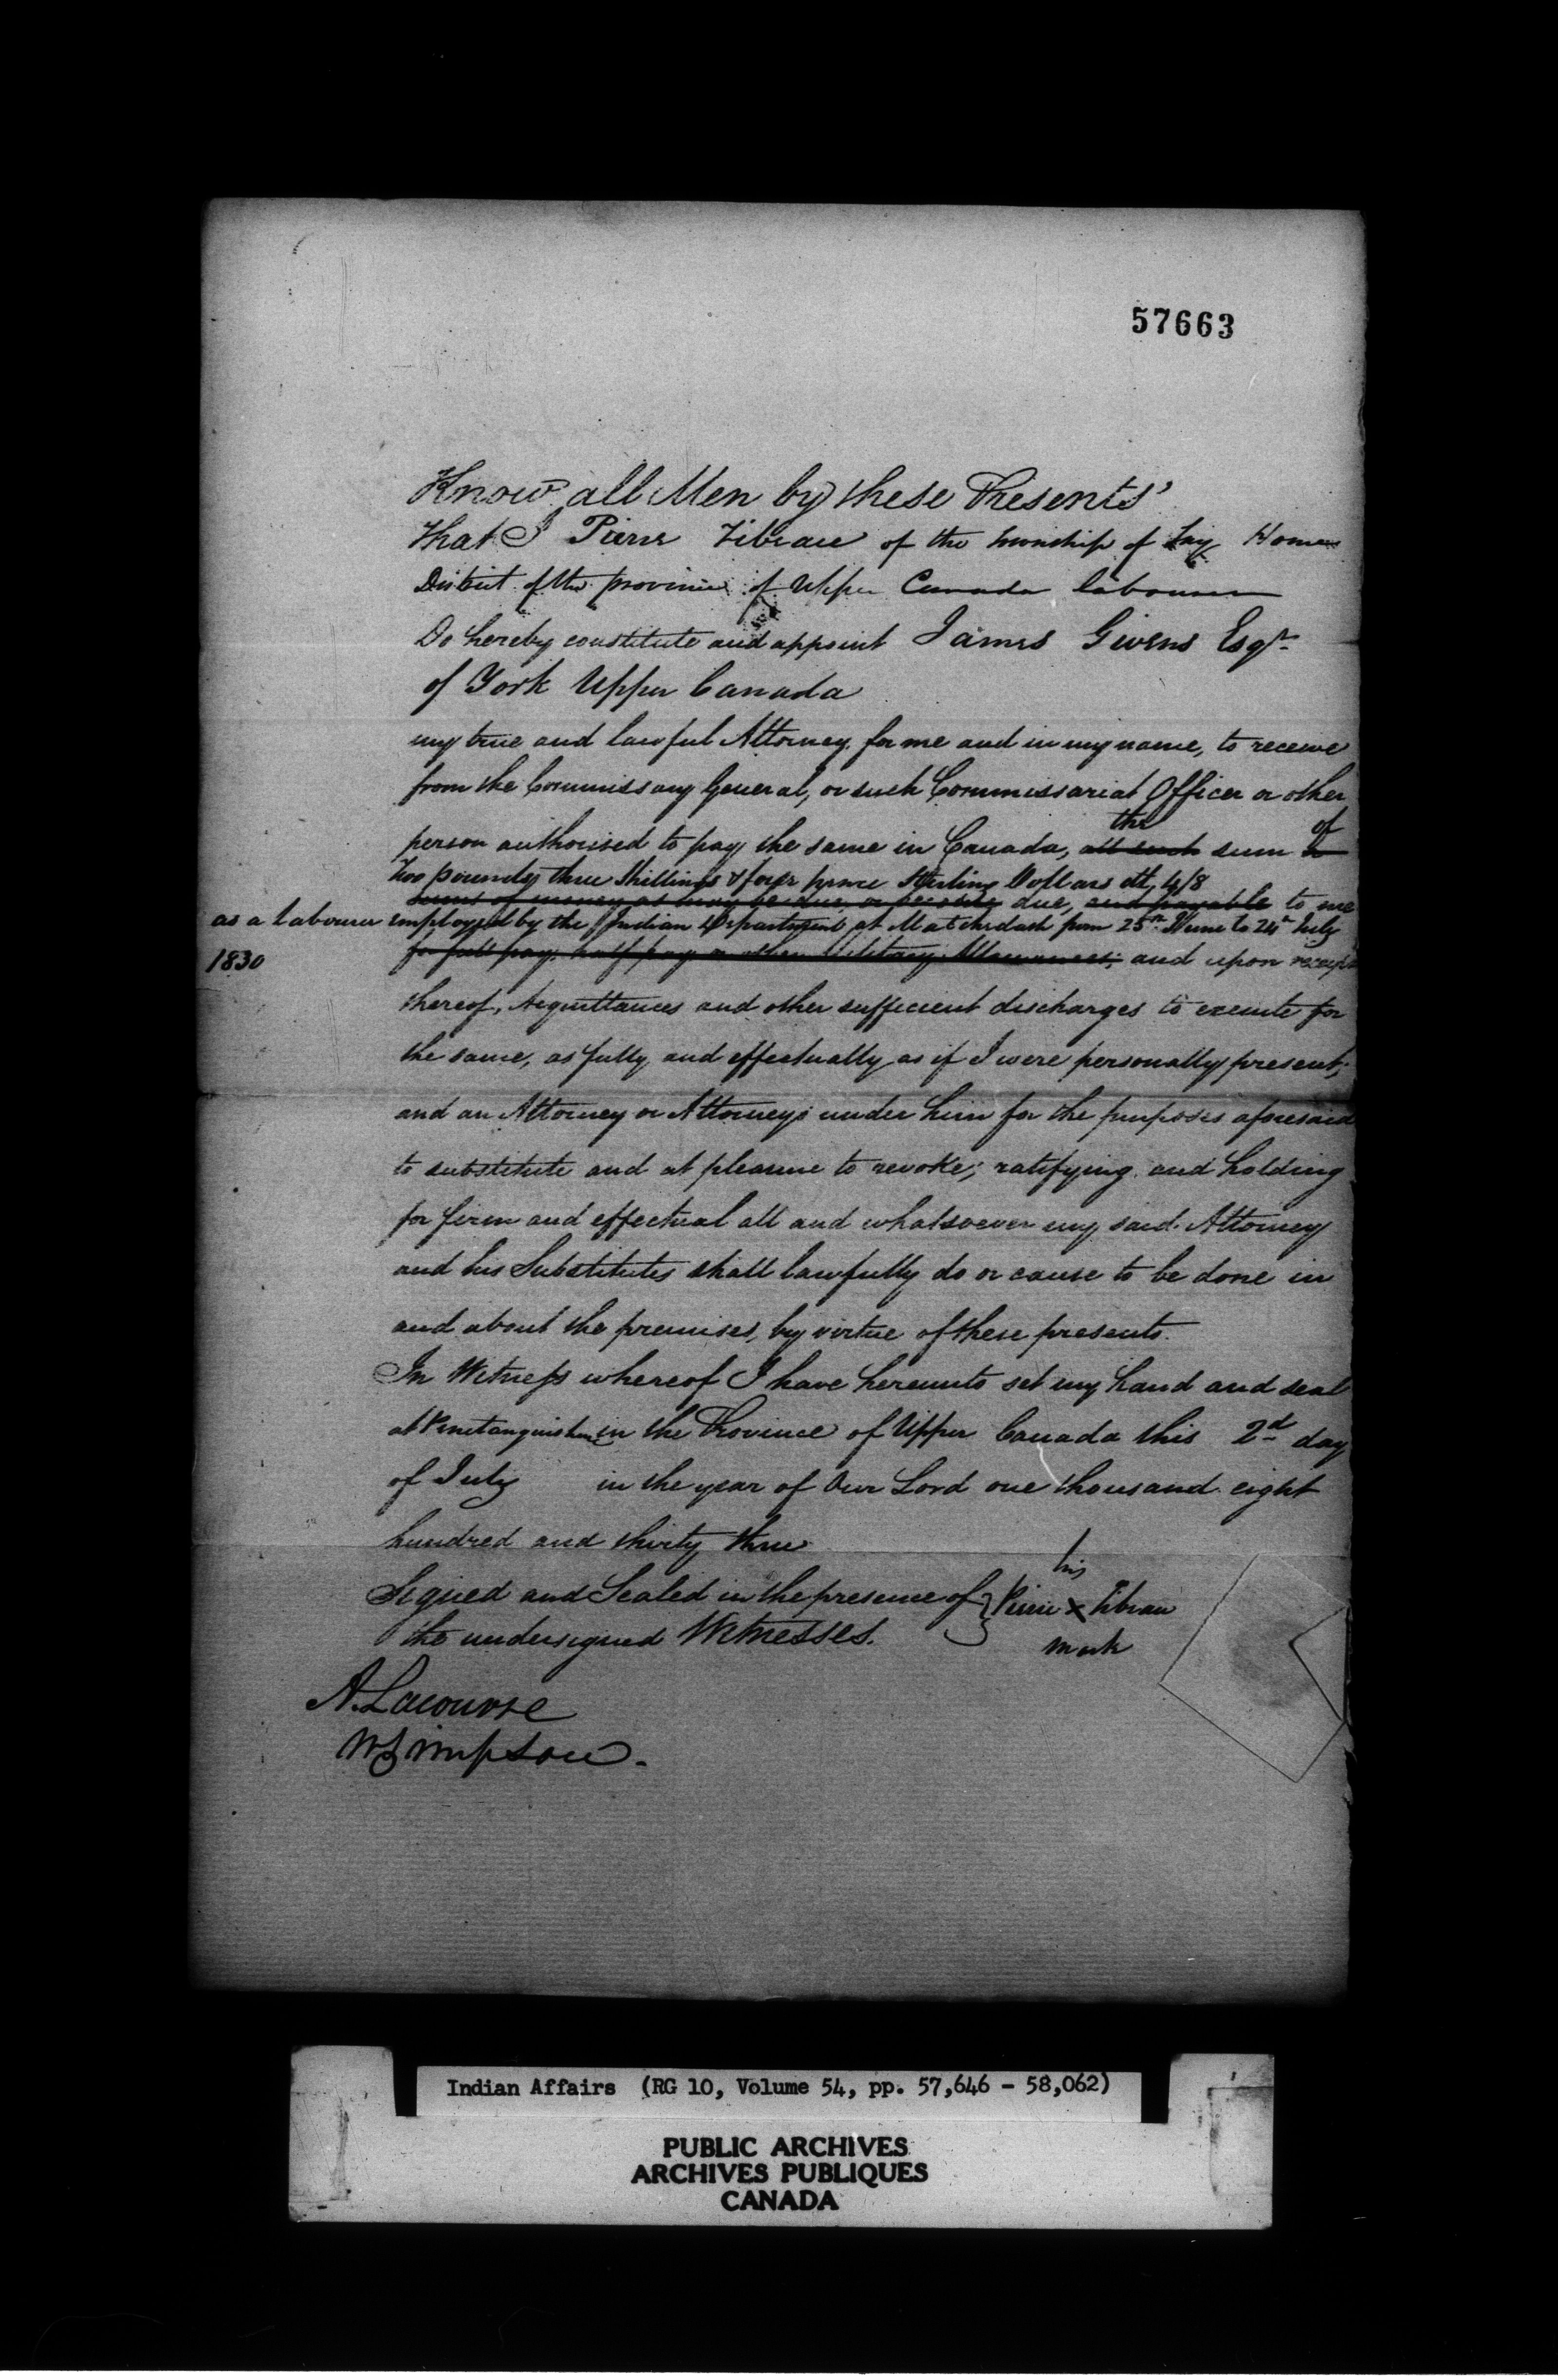 57663
Know all Men by these Presents
that I Pierre Tibeau of the township of Tay Home
District of the province of Upper Canada labourer
Do hereby constitute and appoint James Givens Esqr.
of York Upper Canada
my true and lawful Attorney, for me and in my name, to receive
from the Commissary General, or such Commissariat Officer or other
the of
person authorised to pay the same in Canada, all such sum or
Two pounds three Shillings & four pence Sterling Dollars att 4/8
sums of money as may be due, or become due, and payable to me
as a labourer employed by the Indian Department at Matchedash from 25th June to 24th July
1830
for full pay, half pay or other Military Allowances; and upon receipt
thereof, Acquittances and other sufficient discharges to execute for
the same, as fully and effectually as if I were personally present;
and an Attorney or Attorneys under him for the purposes aforesaid
to substitute and at pleasure to revoke; ratifying and holding
for firm and effectual all and whatsoever my said Attorney
and his Substitutes shall lawfully do or cause to be done in
and about the premises, by virtue of these presents.
In Witness whereof I have hereunto set my hand and seal
at Penetanguishene in the Province of Upper Canada this 2d day
of July in the year of Our Lord one thousand eight
hundred and thirty three
his
Signed and Sealed in the presence of } Pierre x Tibeau
the undersigned Witnesses. mark
A. Lacourse
W Simpson.
Indian Affairs (RG 10, Volume 54, pp. 57,646 - 58,062)
PUBLIC ARCHIVES
ARCHIVES PUBLIQUES
CANADA